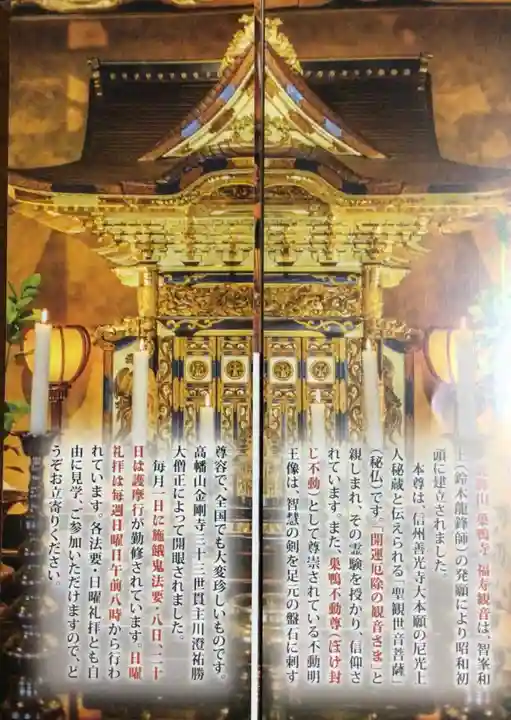 巣鴨寺 福寿観音は、智峯和
(鈴木龍鋒師)の発願により昭和初
頭に建立されました。
本尊は、信州善光寺大本願の尼光上
人秘蔵と伝えられる「聖観世音菩薩」
(秘仏)です。「開運厄除の観音さま」と
親しまれ、その霊験を授かり、信仰さ
れています。また、巣鴨不動尊(ぼけ封
じ不動)として尊崇されている不動明
王像は、智慧の剣を足元の盤石に刺す
尊容で、全国でも大変珍しいものです。
高幡山金剛寺三十三世貫主川澄祐勝
大僧正によって開眼されました。
毎月一日に施餓鬼法要・八日、二十
日は護摩行が勤修されています。日曜
礼拝は毎週日曜日午前八時から行わ
れています。各法要・日曜礼拝とも自
由に見学、ご参加いただけますので、ど
うぞお立寄りください。